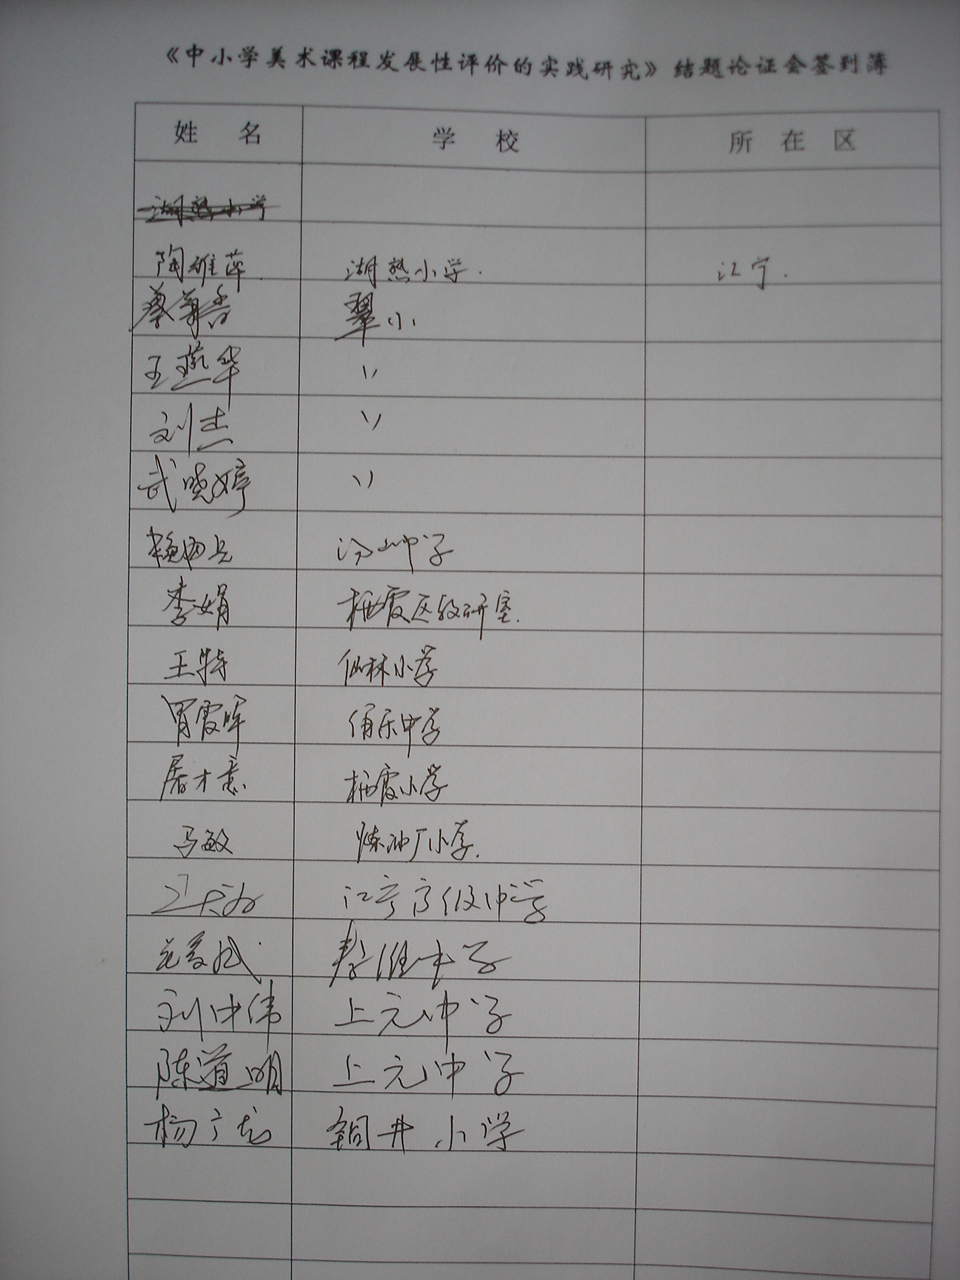 《中小学美术课程发展性评价的实践研究》结题论证会签到簿
姓 名 学 校 所 在 区
湖熟小学
陶维萍 湖熟小学. 江宁.
翠小
王燕华 〃
刘杰 〃
武晓婷 〃
汤山中学
李娟 栖霞区教研室.
王特 仙林小学
胃霞晖 伯乐中学
屠才意 栖霞小学
马敏 炼油厂小学.
江宁高级中学
秦淮中学
刘中伟 上元中学
陈道明 上元中学
杨广龙 铜井小学